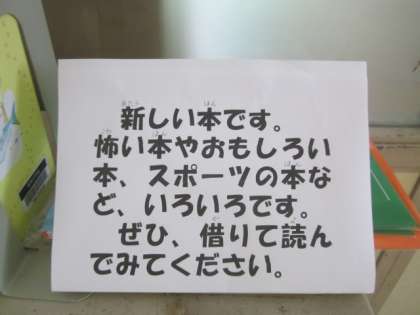 新しい本です。
怖い本やおもしろい
本、スポーツの本な
ど、いろいろです。
ぜひ、借りて読ん
でみてください。